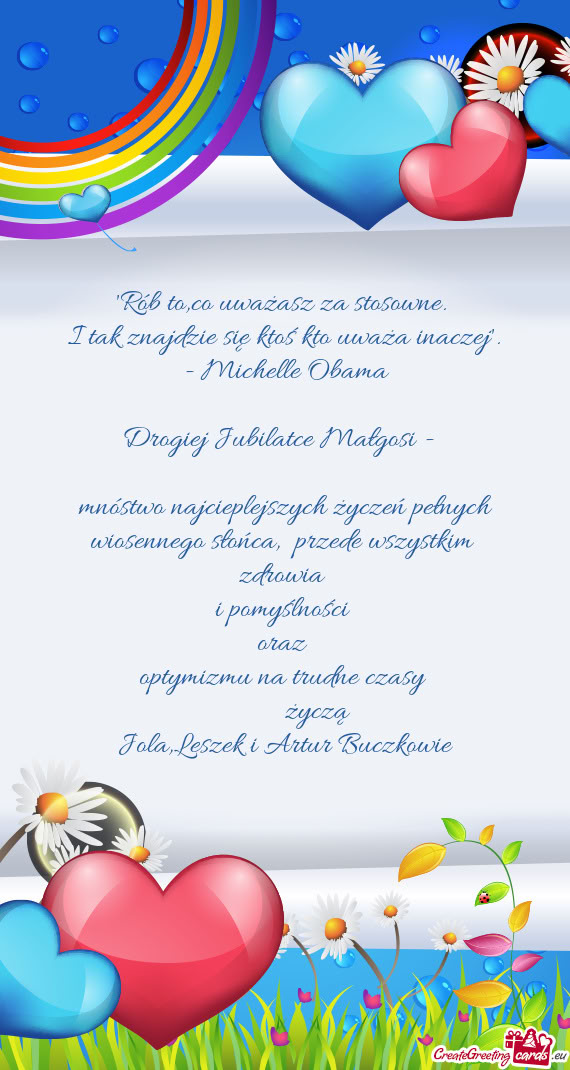 "Rób to,co uważasz za stosowne.
I tak znajdzie się ktoś kto uważa inaczej".
- Michelle Obama
Drogiej Jubilatce Małgosi -
mnóstwo najcieplejszych życzeń pełnych
wiosennego słońca, przede wszystkim
zdrowia
i pomyślności
oraz
optymizmu na trudne czasy
życzą
Jola,Leszek i Artur Buczkowie
CreateGreeting cards .eu